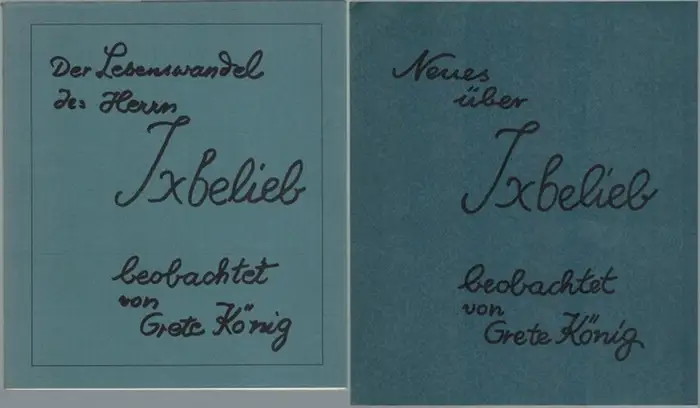 Der Lebenswandel
des Herrn
Ixbelieb
beobachtet
von
Grete König
Neues
über
Ixbelieb
beobachtet
von
Grete König